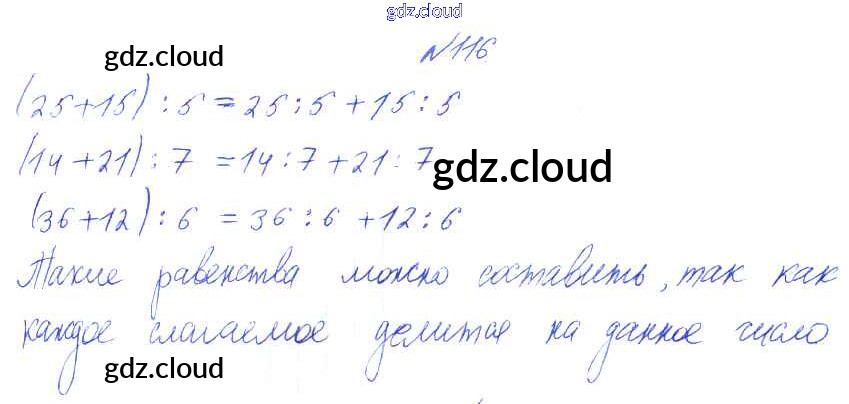 gdz.cloud
gdz.cloud
№116
(25+15) : 5 = 25 : 5 + 15 : 5
(14 +21) : 7 = 14 : 7 + 21 : 7
gdz.cloud
(36+12) : 6 = 36 : 6 +12 : 6
Такие равенства можно составить, так как
каждое слагаемое делится на данное число
gdz.cloud